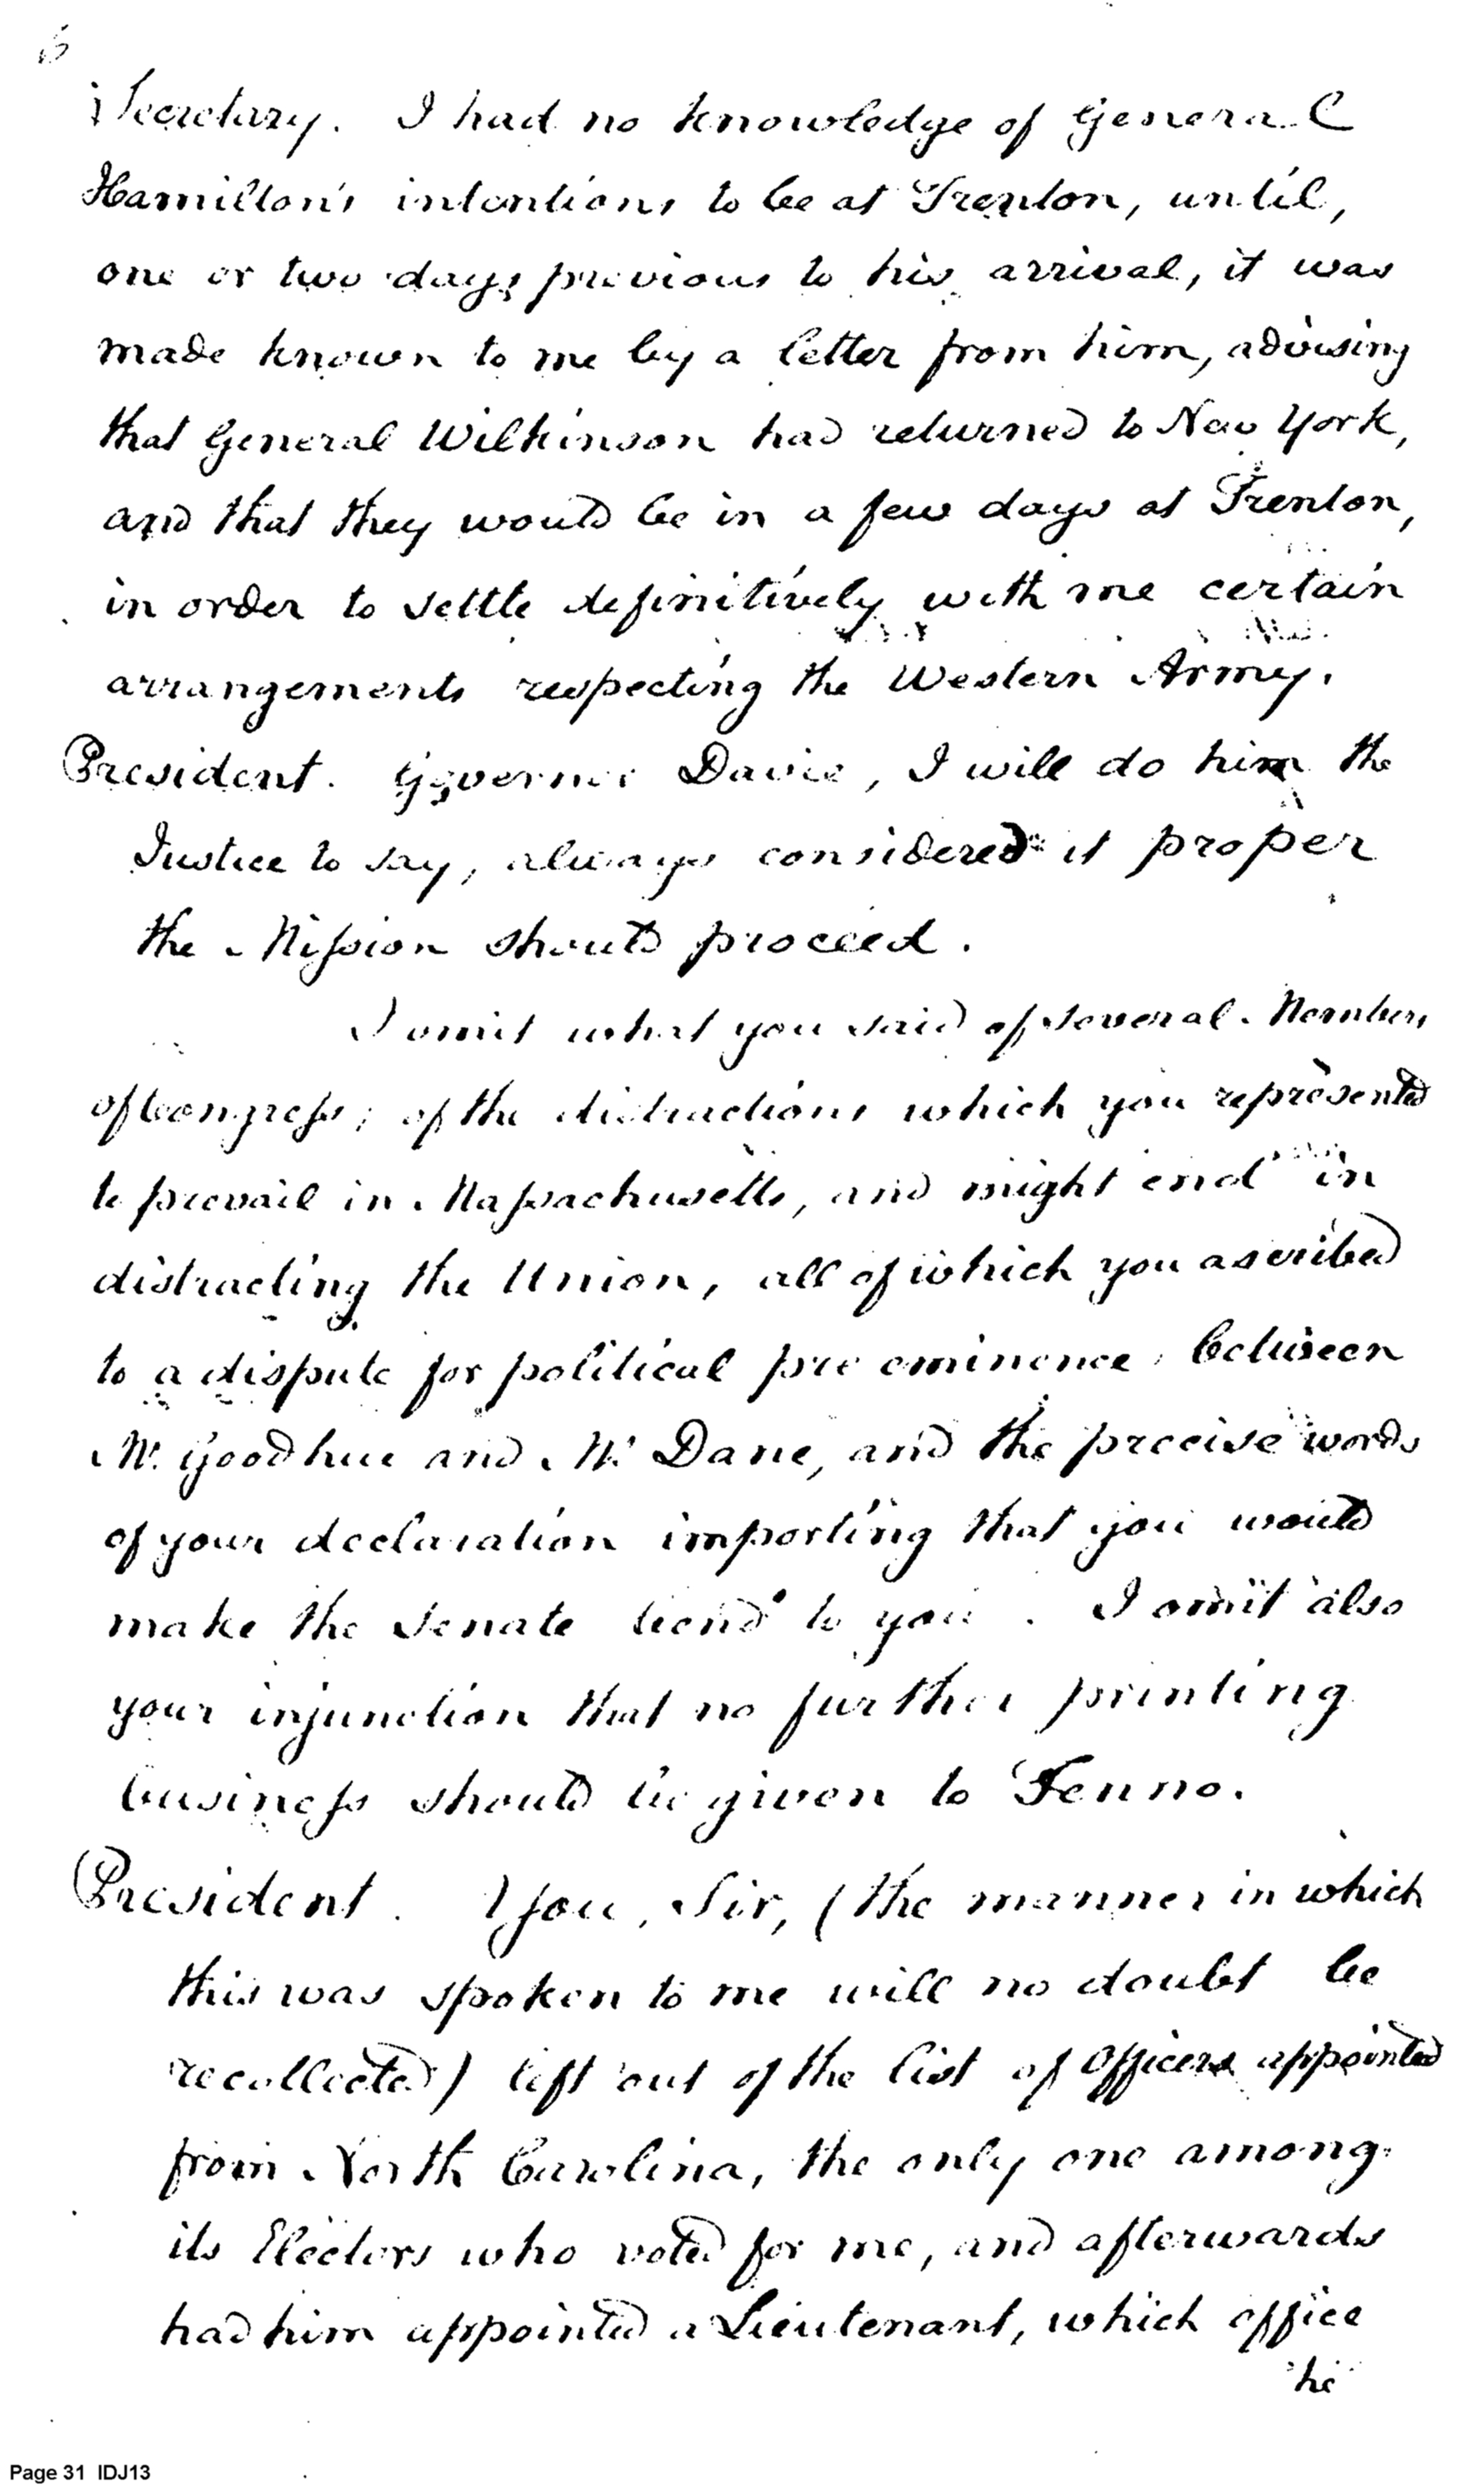 6
Secretary. I had no knowledge of General
Hamilton's intentions to be at Trenton, until,
one or two days previous to his arrival, it was
made known to me by a letter from him, advising
that General Wilkinson had returned to New York,
and that they would be in a few days at Trenton,
in order to settle definitively with me certain
arrangements respecting the Western Army.
President. Governor Davie, I will do him the
Justice to say, always considered it proper
the Mission should proceed.
I omit what you said of several Members
of Congress; of the distractions which you represented
to prevail in Massachusetts, and might end in
distracting the Union, all of which you ascribed
to a dispute for political pre eminence, between
Mr. Goodhue and Mr. Dane, and the precise words
of your declaration importing that you would
make the Senate bend to you. I omit also
your injunction that no further printing
business should be given to Fenno.
President. You, Sir, (the manner in which
this was spoken to me will no doubt be
recollected) left out of the list of Officers appointed
from North Carolina, the only one among
its Electors who voted for me, and afterwards
had him appointed a Lieutenant, which office
he
Page 31 IDJ13